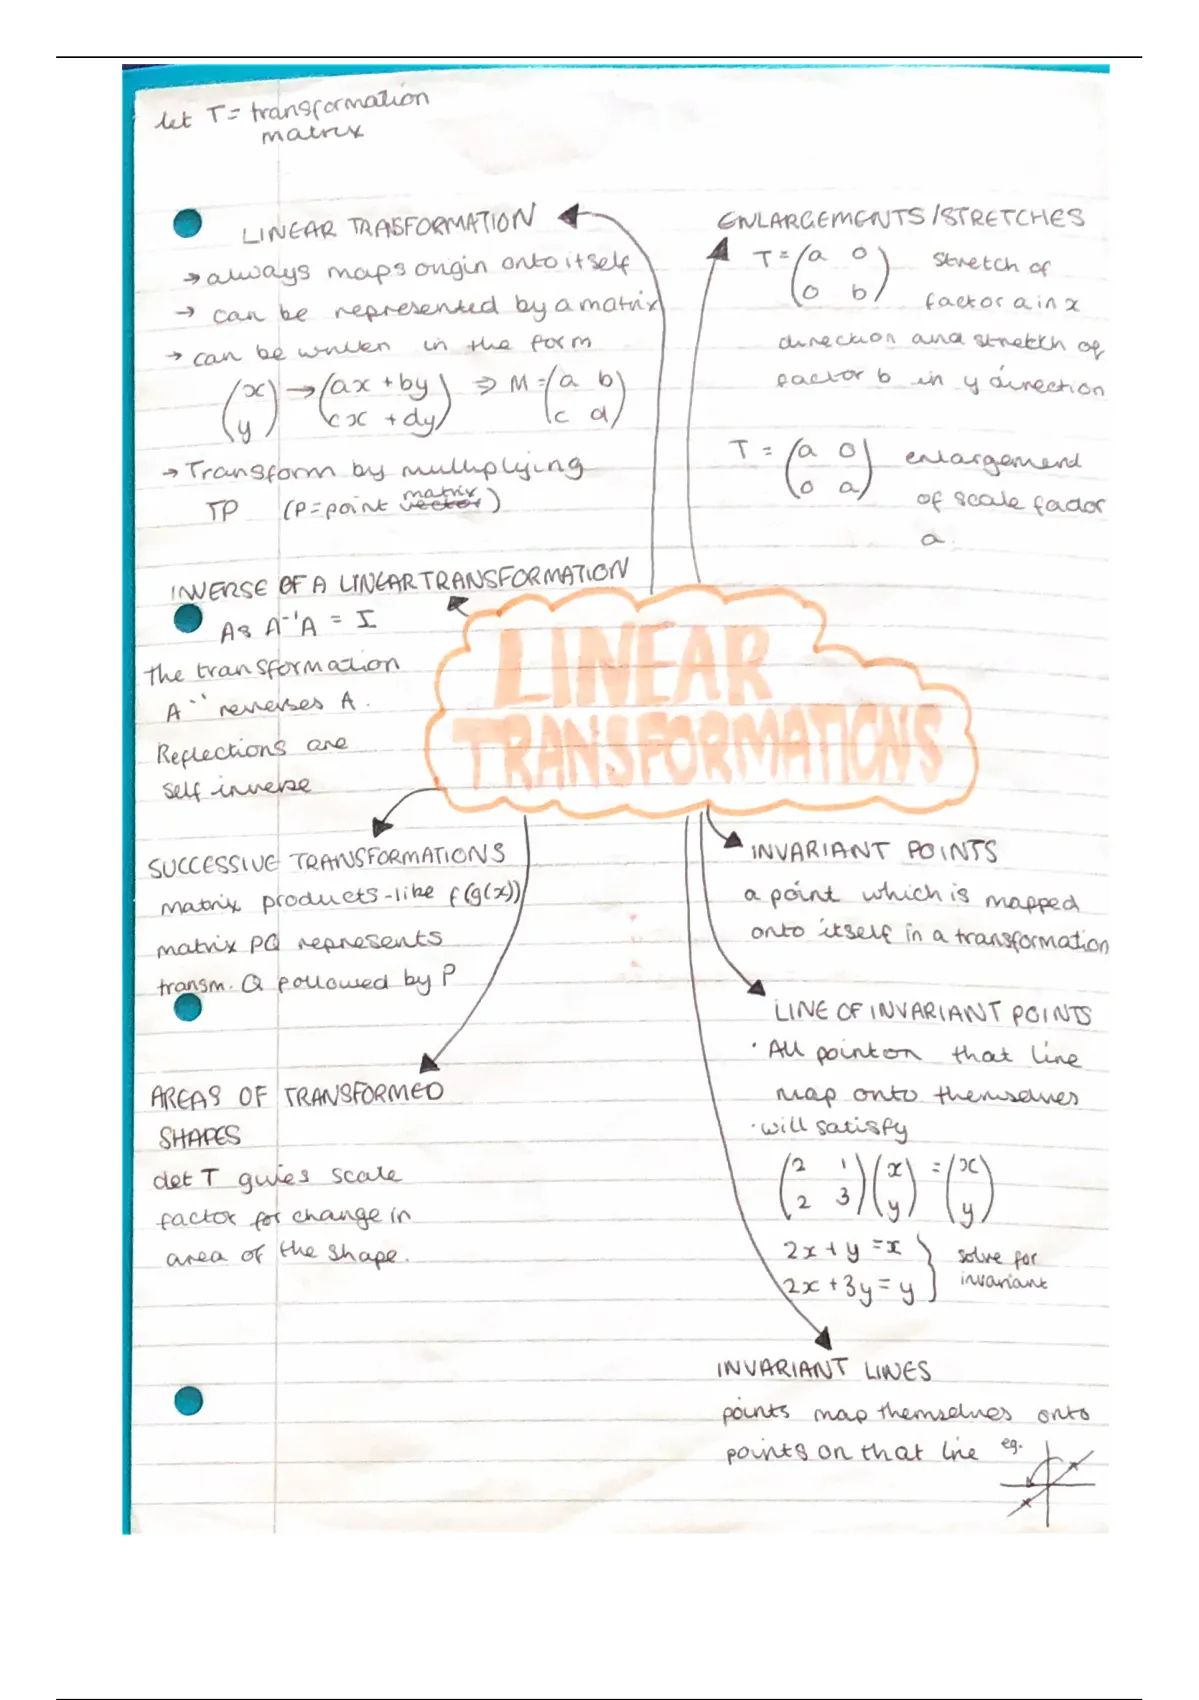 let T = transformation
matrix
LINEAR TRASFORMATION
→ always maps origin onto itself
→ can be represented by a matrix
→ can be written in the form
(x y) → (ax + by cx + dy) ⇒ M = (a b c d)
→ Transform by multiplying
TP (P = point matrix vector)
ENLARGEMENTS / STRETCHES
T = (a 0 0 b) stretch of
factor a in x
direction and stretch of
factor b in y direction
T = (a 0 0 a) enlargement
of scale factor
a.
INVERSE OF A LINEAR TRANSFORMATION
As A⁻¹A = I
the transformation
A⁻¹ reverses A.
Reflections are
self inverse
LINEAR
TRANSFORMATIONS
SUCCESSIVE TRANSFORMATIONS
matrix products - like f(g(x))
matrix PQ represents
transm. Q followed by P
AREAS OF TRANSFORMED
SHAPES
det T gives scale
factor for change in
area of the shape.
INVARIANT POINTS
a point which is mapped
onto itself in a transformation
LINE OF INVARIANT POINTS
· All point on that line
map onto themselves
· will satisfy
(2 1 2 3)(x y) = (x y)
2x + y = x } solve for
2x + 3y = y } invariant
INVARIANT LINES
points map themselves onto
points on that line eg.